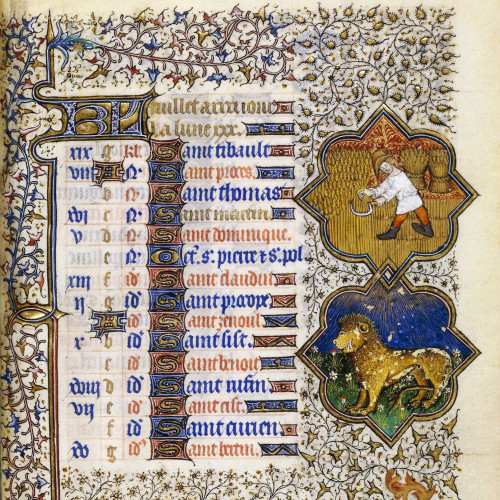 Juillet a xxxi iours
La lune xxx.
xix g kl. Saint tibault
viii A N. Saint proces
b N. Saint thomas
xvi c N. Saint martin
v d N. Saint dominique
e N. oct. s. pierre & s. pol
xiii f id Saint claudin
ii g id Saint procope
A id Saint zenoul
x b id Saint sist
c id Saint benoit
xviii d id Saint rufin
vii e id Saint cist
f id Saint turien
xv g id Saint bertin